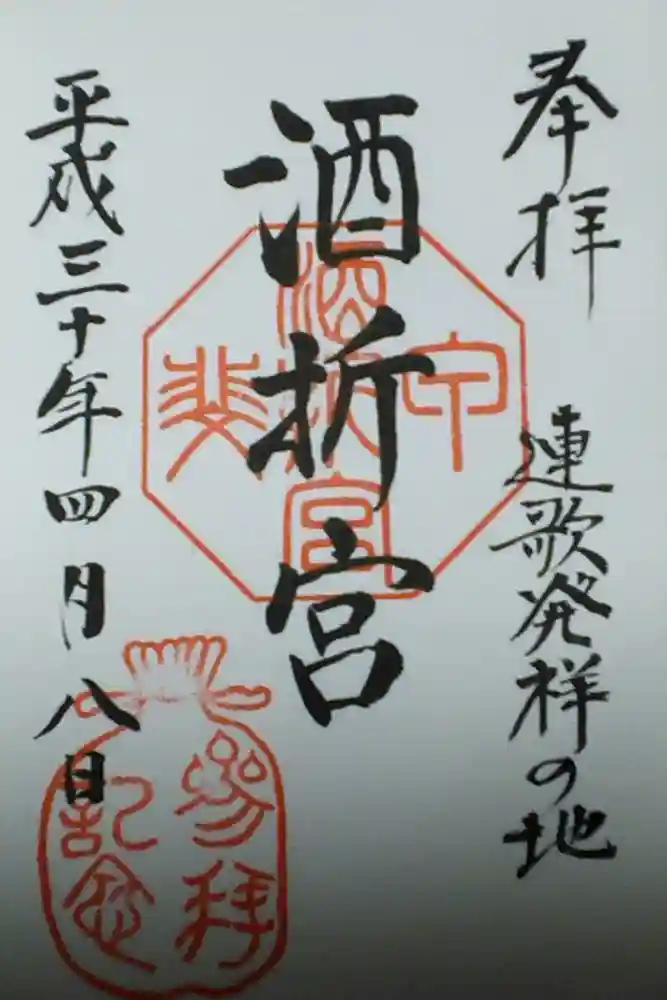 奉拝
連歌発祥の地
酒折宮
平成三十年四月八日
酒折宮
甲斐
參拜
記念